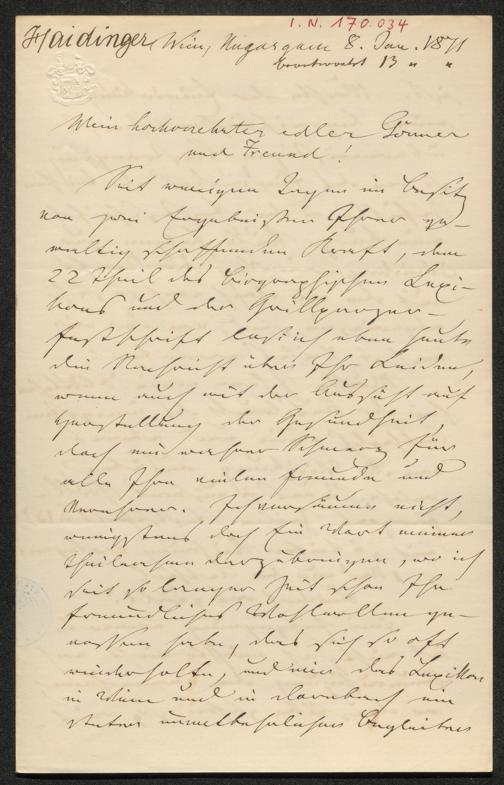 I. N. 170.034
Haidinger, Wien, Ungargasse 8. Jan. 1871
beantwortet 13 " "
Mein hochverehrter edler Gönner
und Freund!
Seit wenigen Tagen im Besitz
von zwei Ergebnissen Ihrer ge-
waltig schaffenden Kraft, dem
22 Theil des biographischen Lexi-
kons und der Grillparzer-
festschrift lese ich eben heute
die Nachricht über Ihr Leiden,
wenn auch mit der Aussicht auf
Herstellung der Gesundheit,
doch ein wahrer Schmerz für
alle Ihre vielen Freunde und
Verehrer. Ich versäume nicht,
wenigstens doch ein Wort meiner
Theilnahme darzubringen, wo ich
seit so langer Zeit schon Ihr
freundliches Wohlwollen ge-
nossen habe, das sich so oft
wiederholte, und mir das Lexikon
in Wien und in Dornbach ein
steter unentbehrlicher Begleiter